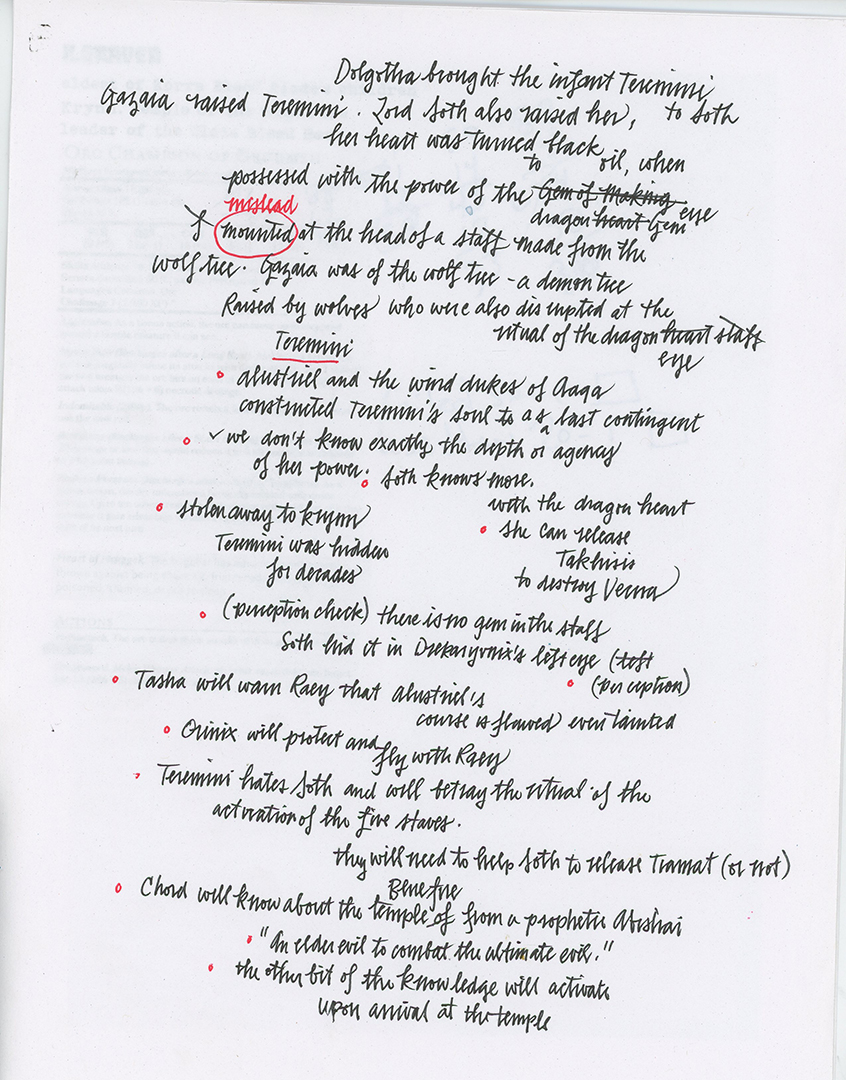 Dolgotha brought the infant Teremini
Gazaia raised Teremini. Lord Soth also raised her, to Soth
her heart was turned black
to oil, when
possessed with the power of the Gem of Making
mislead
dragon heart Gem eye
mounted at the head of a staff made from the
wolf tree. Gazaia was of the wolf tree - a demon tree
Raised by wolves who were also disrupted at the
ritual of the dragon heart staff
eye
Teremini
alustriel and the wind dukes of Aaqa
constructed Teremini's soul to as a last contingent
✓ we don't know exactly the depth or agency
of her power.
Soth knows more.
stolen away to krynn
Teremini was hidden
for decades
with the dragon heart
she can release
Takhisis
to destroy Vecna)
(perception check) there is no gem in the staff
Soth hid it in Drekaryonix's left eye (left
(perception)
Tasha will warn Raey that alustriel's
course is flawed even tainted
Orinix will protect and
fly with Raey
Teremini hates Soth and will betray the ritual of the
activation of the five staves.
they will need to help Soth to release Tiamat (or not)
Chord will know about the temple of from a prophetic Abishai
"An elder evil to combat the ultimate evil."
the other bit of the knowledge will activate
upon arrival at the temple